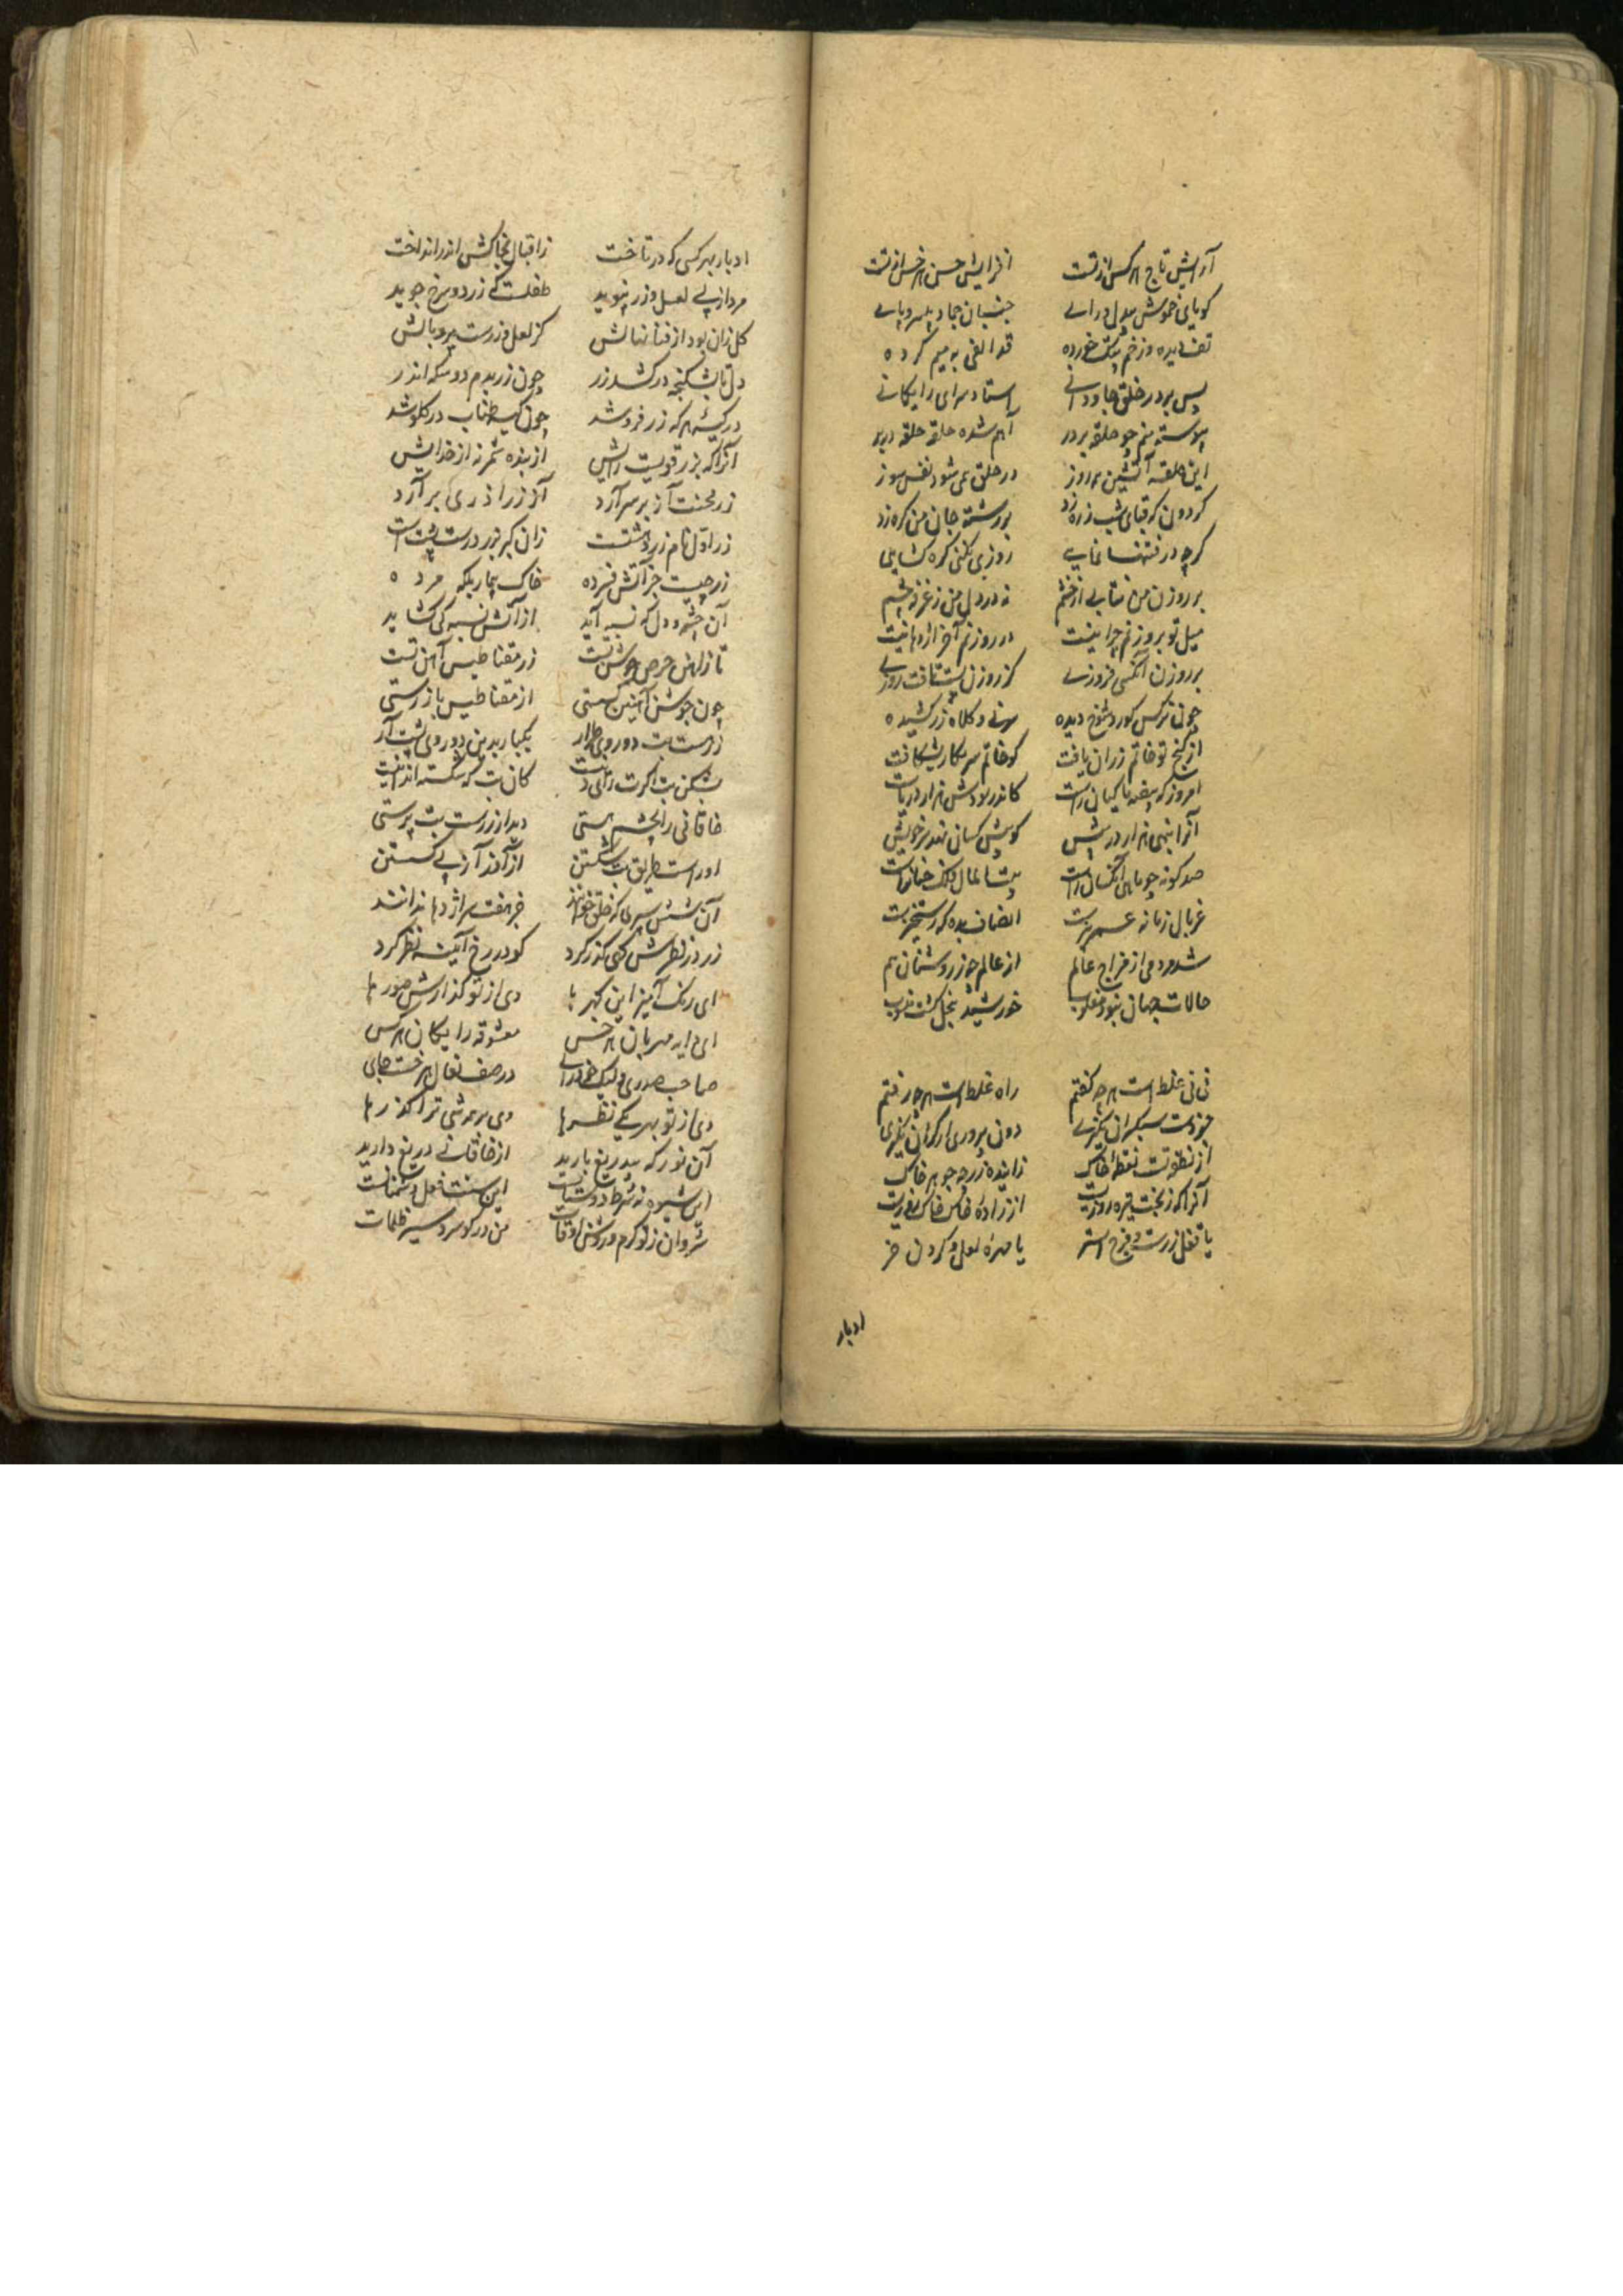 آرایش تاج هر کس از تست افزایش حسن هر خس از تست
کویای خموش بیدل و رای جنبان جماد بیسر و پای
تف دیده و زخم پتک خورده قد الفی به میم کرده
پس بر در خلق جاودانی استاد سرای رایکانی
پیوسته منم چو حلقه بر در آهم شده حلقه حلقه در بر
این حلقه آتشین همه روز در حلق همی شود نفس سوز
کردون که قبای شب زره زد بر رشته جان من کره زد
کرچه در فتنها نمایی روزی بکنی کره کشایی
بر روزن من نتابی از خشم نه در دل من ز غز نه چشم
میل تو بروزنم چرا نیست در روزنم آخر اژدها نیست
بر روزن آنکسی فروزی کز روزن تست تافت روزی
چون نرکس کور شوخ دیده سرنی و کلاه زر کشیده
از کنج تو خاتم زران یافت کو خاتم سر بکار بشکافت
امروز که بیضه ماکیان راست کاندر سر و دش هزار دریاست
آنرا بنهی هزار در پیش کو پیش کسان نهد سر خویش
صد کونه چو ماهی آنکسان راست بیت المال فلک خسان راست
غربال زمانه عمر بیزست انصاف بده که رستخیزست
شد مردمی از مزاج عالم از عالم چه ز روشنان هم
حالات جهان نبود مقلوب خورشید بخیل کشت منسوب
نی نی غلط است هر چه کفتم راه غلط است هر چه رفتم
جز دست سبکسران نکیری دون پروری ار کران نکیری
از نطفه تست نقطه خاک زاینده زر چو جوهر خاک
آنرا که ز بخت تیره روزیست از زاده خاک خاک روزیست
یا نعل زرست و فرج استر یا مهره لعل و کردن خر
ادبار
ادبار بهر کسی که در تاخت ز اقبال بخاکش اندر انداخت
مرد از پی لعل و زر نپوید طفلست که زرد و سرخ جوید
کل زان بود از فنا نهالش کز لعل و زرست پر و بالش
دل تا بشکنجه در کشد زر چون زر بدم دو سکه اندر
در کیسه هر که زر فرو شد چون کیسه طناب در کلو شد
آنرا که بزر قویست رایش از بنده شمر نه از خدایش
زر محنت آز بر سر آرد آز زر آذری بر آرد
زر اول نام زردهشتست زان کبر بزر درست پشت است
زر چیست جز آتش فسرده خاک بیمار بلکه مرده
آن چشم و دل که نسبه آید از آتش نسبه کی کشاید
تا ز آهن حرص جوشن تست زر مقناطیس آهن تست
چون جوشن آهنین کسستی از مقناطیس باز رستی
زر هست بت دو روی طرار یکبار بدین دو روی پشت آر
بشکن بت اکرت رای دینست کان بت که شکسته اند اینست
خاقانی را بچشم هستی دید از زرست بت پرستی
او راست طریق بت شکستن از آفت آز پی کسستن
آن شش سری که خلق خوانند جز هفت سر اژدها ندانند
زر در نظرش کهی کذر کرد کو در رخ آینه نظر کرد
ای رنک آمیز این کهر ها دی از تو کذارش صور ها
ای دایه مهربان هر خس معشوقه رایکان هر کس
صاحب صدری ولیک خودرای در صف نعال هر خست جای
دی از تو بهر یکی نظرها دی بر همه شی ترا کذرها
آن نور که بیدریغ بارید از خاقانی دریغ دارید
این شیوه نه شرط دوستیست این سنت فعل دشمنانست
شروان ز تو کرم و روشن اوقات من در کو سرد سیر ظلمات